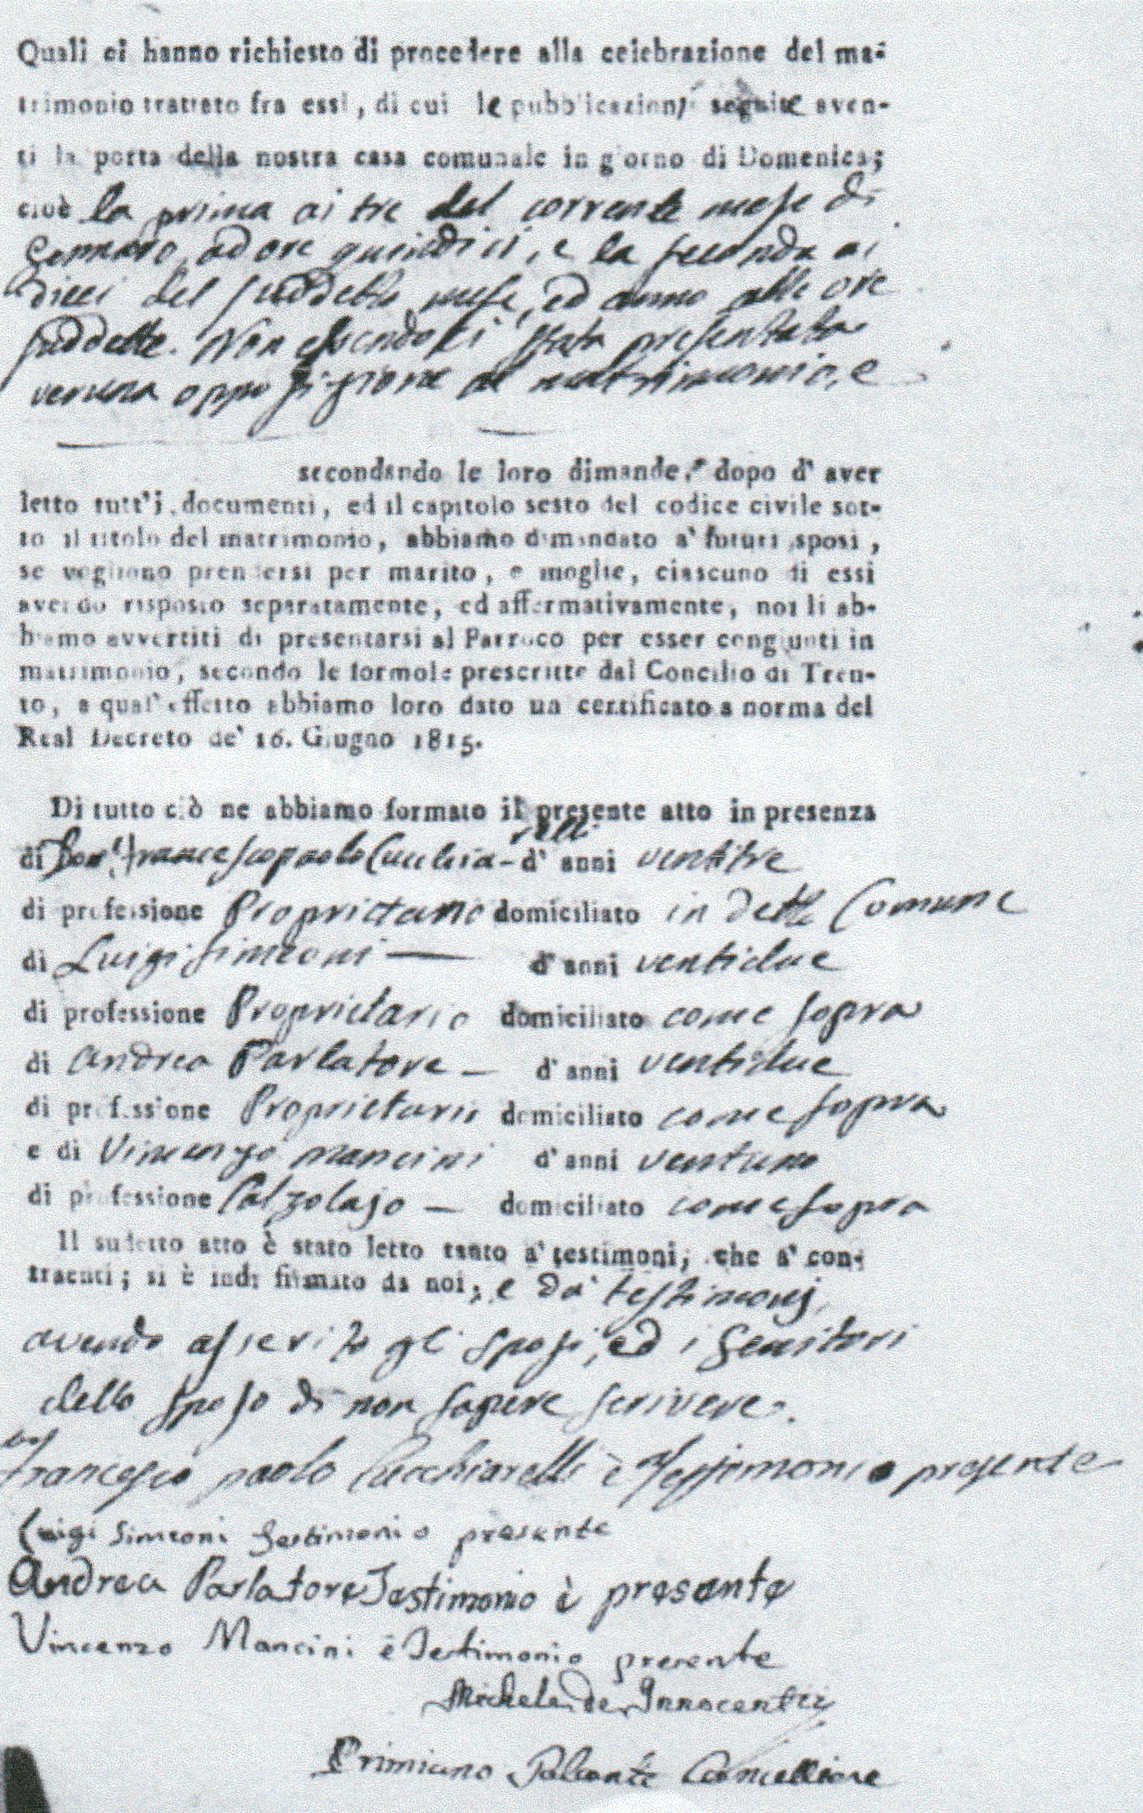 Quali ci hanno richiesto di procedere alla celebrazione del ma-
trimonio trattato fra essi, di cui le pubblicazioni seguite aven-
ti la porta della nostra casa comunale in giorno di Domenica;
cioè la prima ai tre del corrente mese di
Gennaro, ad ore quindici, e la seconda ai
dieci del suddetto mese, ed anno alle ore
suddette. Non essendosi stata presentata
veruna opposizione al matrimonio, e
secondando le loro dimande, dopo d' aver
letto tutt'i documenti, ed il capitolo sesto del codice civile sot-
to il titolo del matrimonio, abbiamo dimandato a' futuri sposi,
se vogliono prendersi per marito, e moglie, ciascuno di essi
avendo risposto separatamente, ed affermativamente, noi li ab-
biamo avvertiti di presentarsi al Parroco per esser congiunti in
matrimonio, secondo le formole prescritte dal Concilio di Tren-
to, a qual' effetto abbiamo loro dato un certificato a norma del
Real Decreto de' 16. Giugno 1815.
Di tutto ciò ne abbiamo formato il presente atto in presenza
di Don Francescopaolo Cucchiarelli d' anni ventitre
di professione Proprietario domiciliato in detto Comune
di Luigi Simeoni — d' anni ventidue
di professione Proprietario domiciliato come sopra
di Andrea Parlatore — d' anni ventidue
di professione Proprietario domiciliato come sopra
e di Vincenzo Mancini d' anni ventuno
di professione Calzolajo — domiciliato come sopra
Il sudetto atto è stato letto tanto a' testimoni, che a' con-
traenti; si è indi firmato da noi, e da' testimonj,
avendo asserito gli sposi, ed i Genitori
dello sposo di non sapere scrivere.
Francesco paolo Cucchiarelli è Testimonio presente
Luigi Simeoni Testimonio presente
Andrea Parlatore Testimonio è presente
Vincenzo Mancini è Testimonio presente
Michele de Innocentii
Primiano Palante Cancelliere